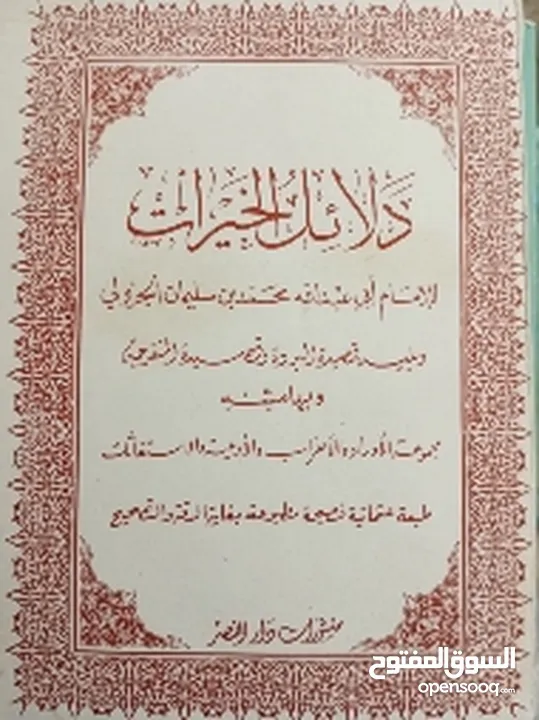 دلائل الخيرات
للإمام أبي عبدالله محمد بن سليمان الجزولي
ويليه قصيدة البردة والقصيدة المنفرجة
وبهامشه
مجموعة الأوراد والأحزاب والأدعية والاستغاثات
طبعة عثمانية مصححة مطبوعة بغاية الدقة والتصحيح
منشورات دار النصر
السوق المفتوح
opensooq.com